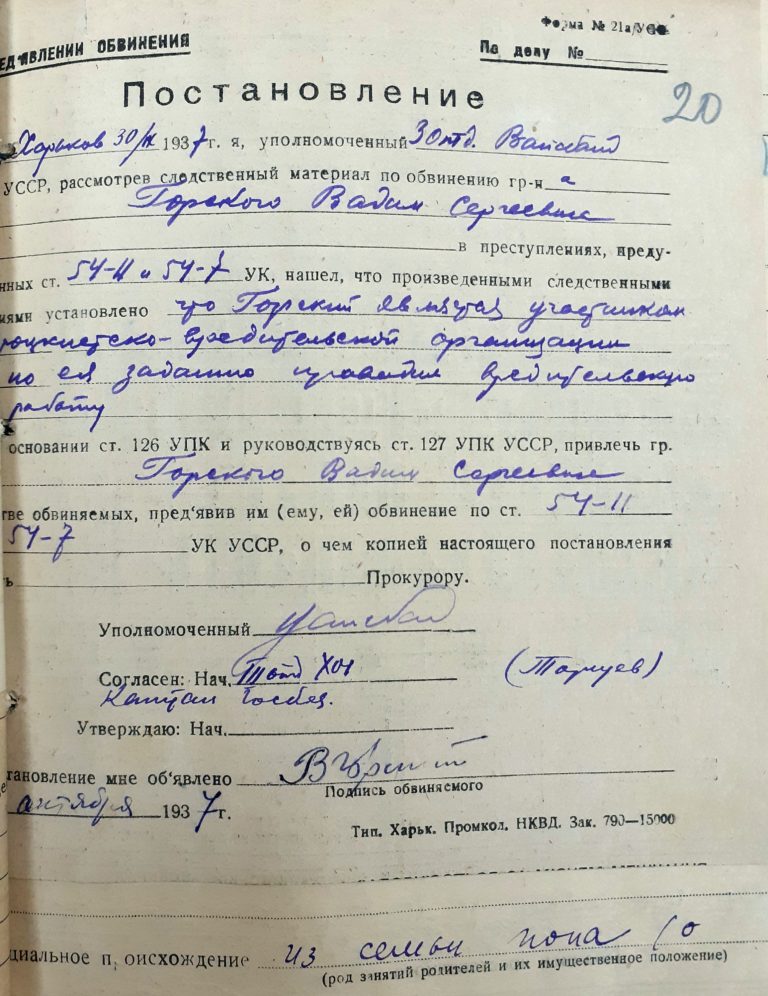 Форма № 21а/УСО
ЕД'ЯВЛЕНИИ ОБВИНЕНИЯ
По делу №
Постановление
20
Харьков 30/IX 1937г. я, уполномоченный 3 отд.
УССР, рассмотрев следственный материал по обвинению гр-на
Горского Вадим Сергеевич
в преступлениях, преду-
нных ст. 54-11 и 54-7 УК, нашел, что произведенными следственными
иями установлено что Горский является участником
роцкистско-вредительской организации
по ея заданию проводил вредительскую
работу
основании ст. 126 УПК и руководствуясь ст. 127 УПК УССР, привлечь гр.
Горского Вадим Сергеевич
тве обвиняемых, пред'явив им (ему, ей) обвинение по ст. 54-11
54-7 УК УССР, о чем копией настоящего постановления
ь Прокурору.
Уполномоченный
Согласен: Нач.
Капитан Госбез.
Утверждаю: Нач.
тановление мне об'явлено
Подпись обвиняемого
октября 1937г.
Тип. Харьк. Промкол. НКВД. Зак. 790—15000
циальное п оисхождение из семьи попа
(род занятий родителей и их имущественное положение)